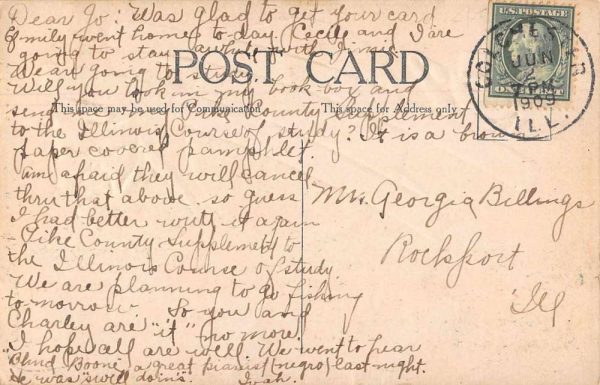 Dear Jo: Was glad to get your card
Emily went home to-day. Cecile and I are
going to stay awhile with
We are going to study.
Will you look in my book-box and
send me my Pike County supplement
to the Illinois Course of study? It is a brown
paper covered pamphlet.
I am afraid they will cancel
thru that above so guess
I had better write it again
- Pike County Supplement to
the Illinois Course of study
We are planning to go fishing
to-morrow. So you and
Charley are "it" no more.
I hope all are well. We went to hear
"Blind Boone" a great pianist (negro) last night.
He was "well doins".
POST CARD
This space may be used for Communication
This space for Address only
U.S. POSTAGE
ONE CENT
COLCHESTER
JUN
2
1909
ILL.
Georgia Billings
Rockport
Ill